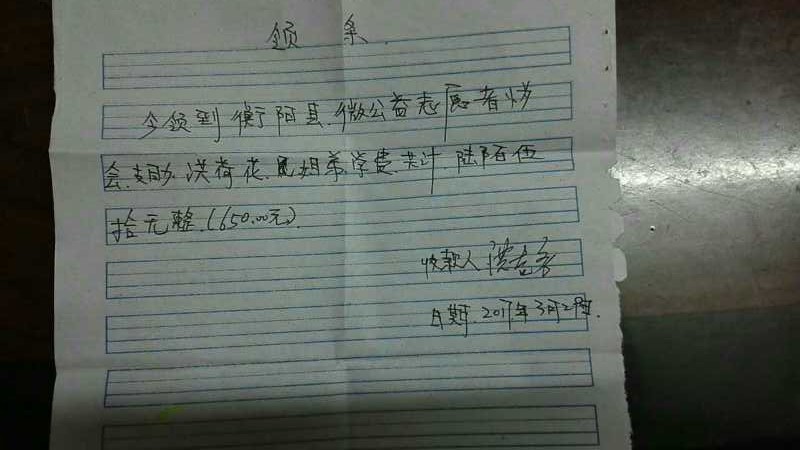 领 条.
今领到衡阳县.微公益志愿者协
会.支助.洪荷花.姐弟.学费.共计.陆陌伍
拾元整.(650.00元).
收款人 洪
日期.2017年3月2日.